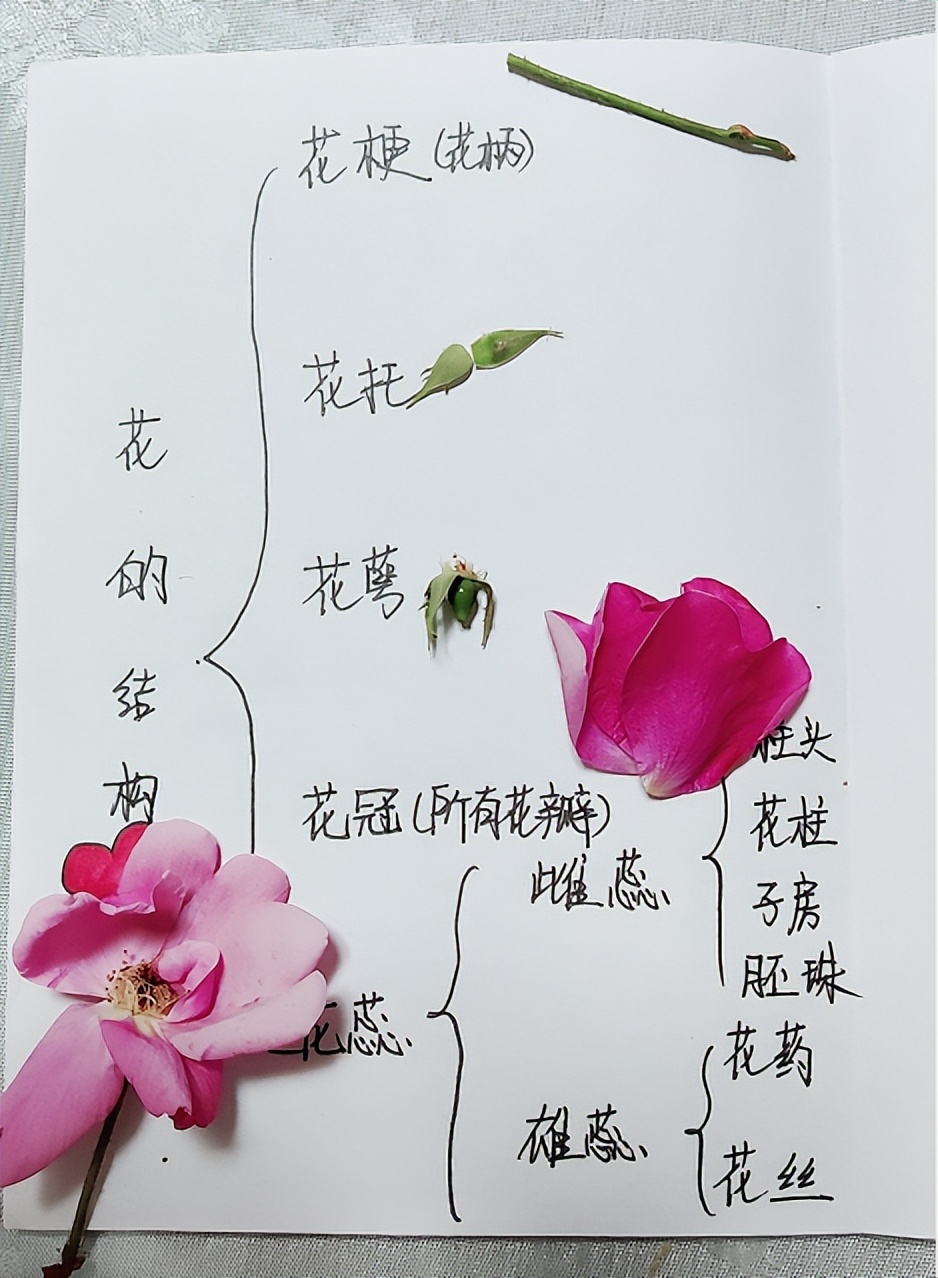 花的结构
花梗(花柄)
花托
花萼
花冠(所有花瓣)
花蕊
雌蕊
柱头
花柱
子房
胚珠
雄蕊
花药
花丝